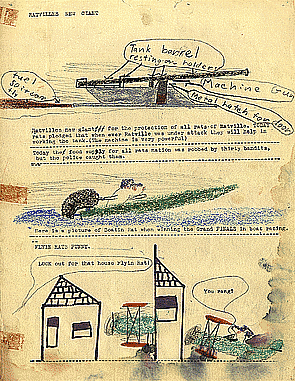 RATVILLES NEW GIANT
Tank barrel
resting on holder
Fuel
Machine Gun
metal hatch
Ratvilles new giant for the protection of all rats of Ratville. Other
rats pledget that when ever Ratville was under attack they will help in
working the tank.(The machine is very powerful)
Today the food supply for all rats nation was robbed by thirty bandits,
but the police caught them.
Here is a picture of Boatin Rat when winning the Grand FINALS in boat racing.
FLYIN RATS FUNNY.
LOOK out for that house Flyin Rat!
You rang?